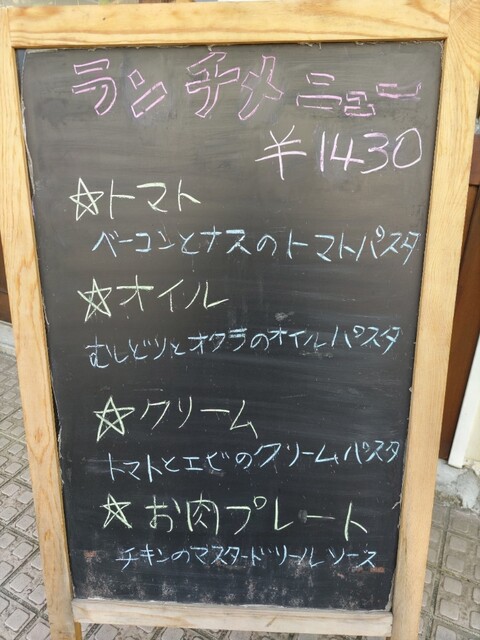 ランチメニュー
￥1430
☆トマト
ベーコンとナスのトマトパスタ
☆オイル
むしどりとオクラのオイルパスタ
☆クリーム
トマトとエビのクリームパスタ
☆お肉プレート
チキンのマスタードソールソース